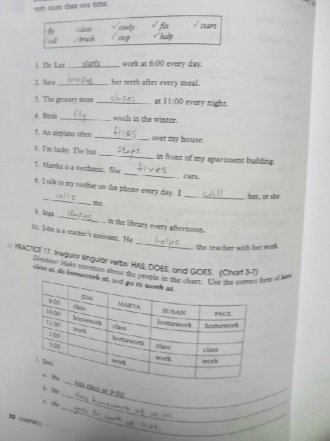 verb more than one time.
fly close ✓study ✓fix ✓start
call ✓brush ✓stop ✓help
1. Dr. Lee starts work at 6:00 every day.
2. Sara brushes her teeth after every meal.
3. The grocery store closes at 11:00 every night.
4. Birds fly south in the winter.
5. An airplane often flies over my house.
6. I'm lucky. The bus stops in front of my apartment building.
7. Martha is a mechanic. She fixes cars.
8. I talk to my mother on the phone every day. I call her, or she
calls me.
9. Inga in the library every afternoon.
10. John is a teacher's assistant. He helps the teacher with her work.
PRACTICE 17. Irregular singular verbs: HAS, DOES, and GOES. (Chart 3-7)
Directions: Make sentences about the people in the chart. Use the correct form of have
class at, do homework at, and go to work at.
JIM MARTA SUSAN PAUL
9:00 class homework homework
10:00 homework class
11:00 class class
1:00 work work
2:00 work work
1. Jim:
a. He has class at 9:00.
b. He homework at 10:00.
c. He goes to work at
32 CHAPTER 3